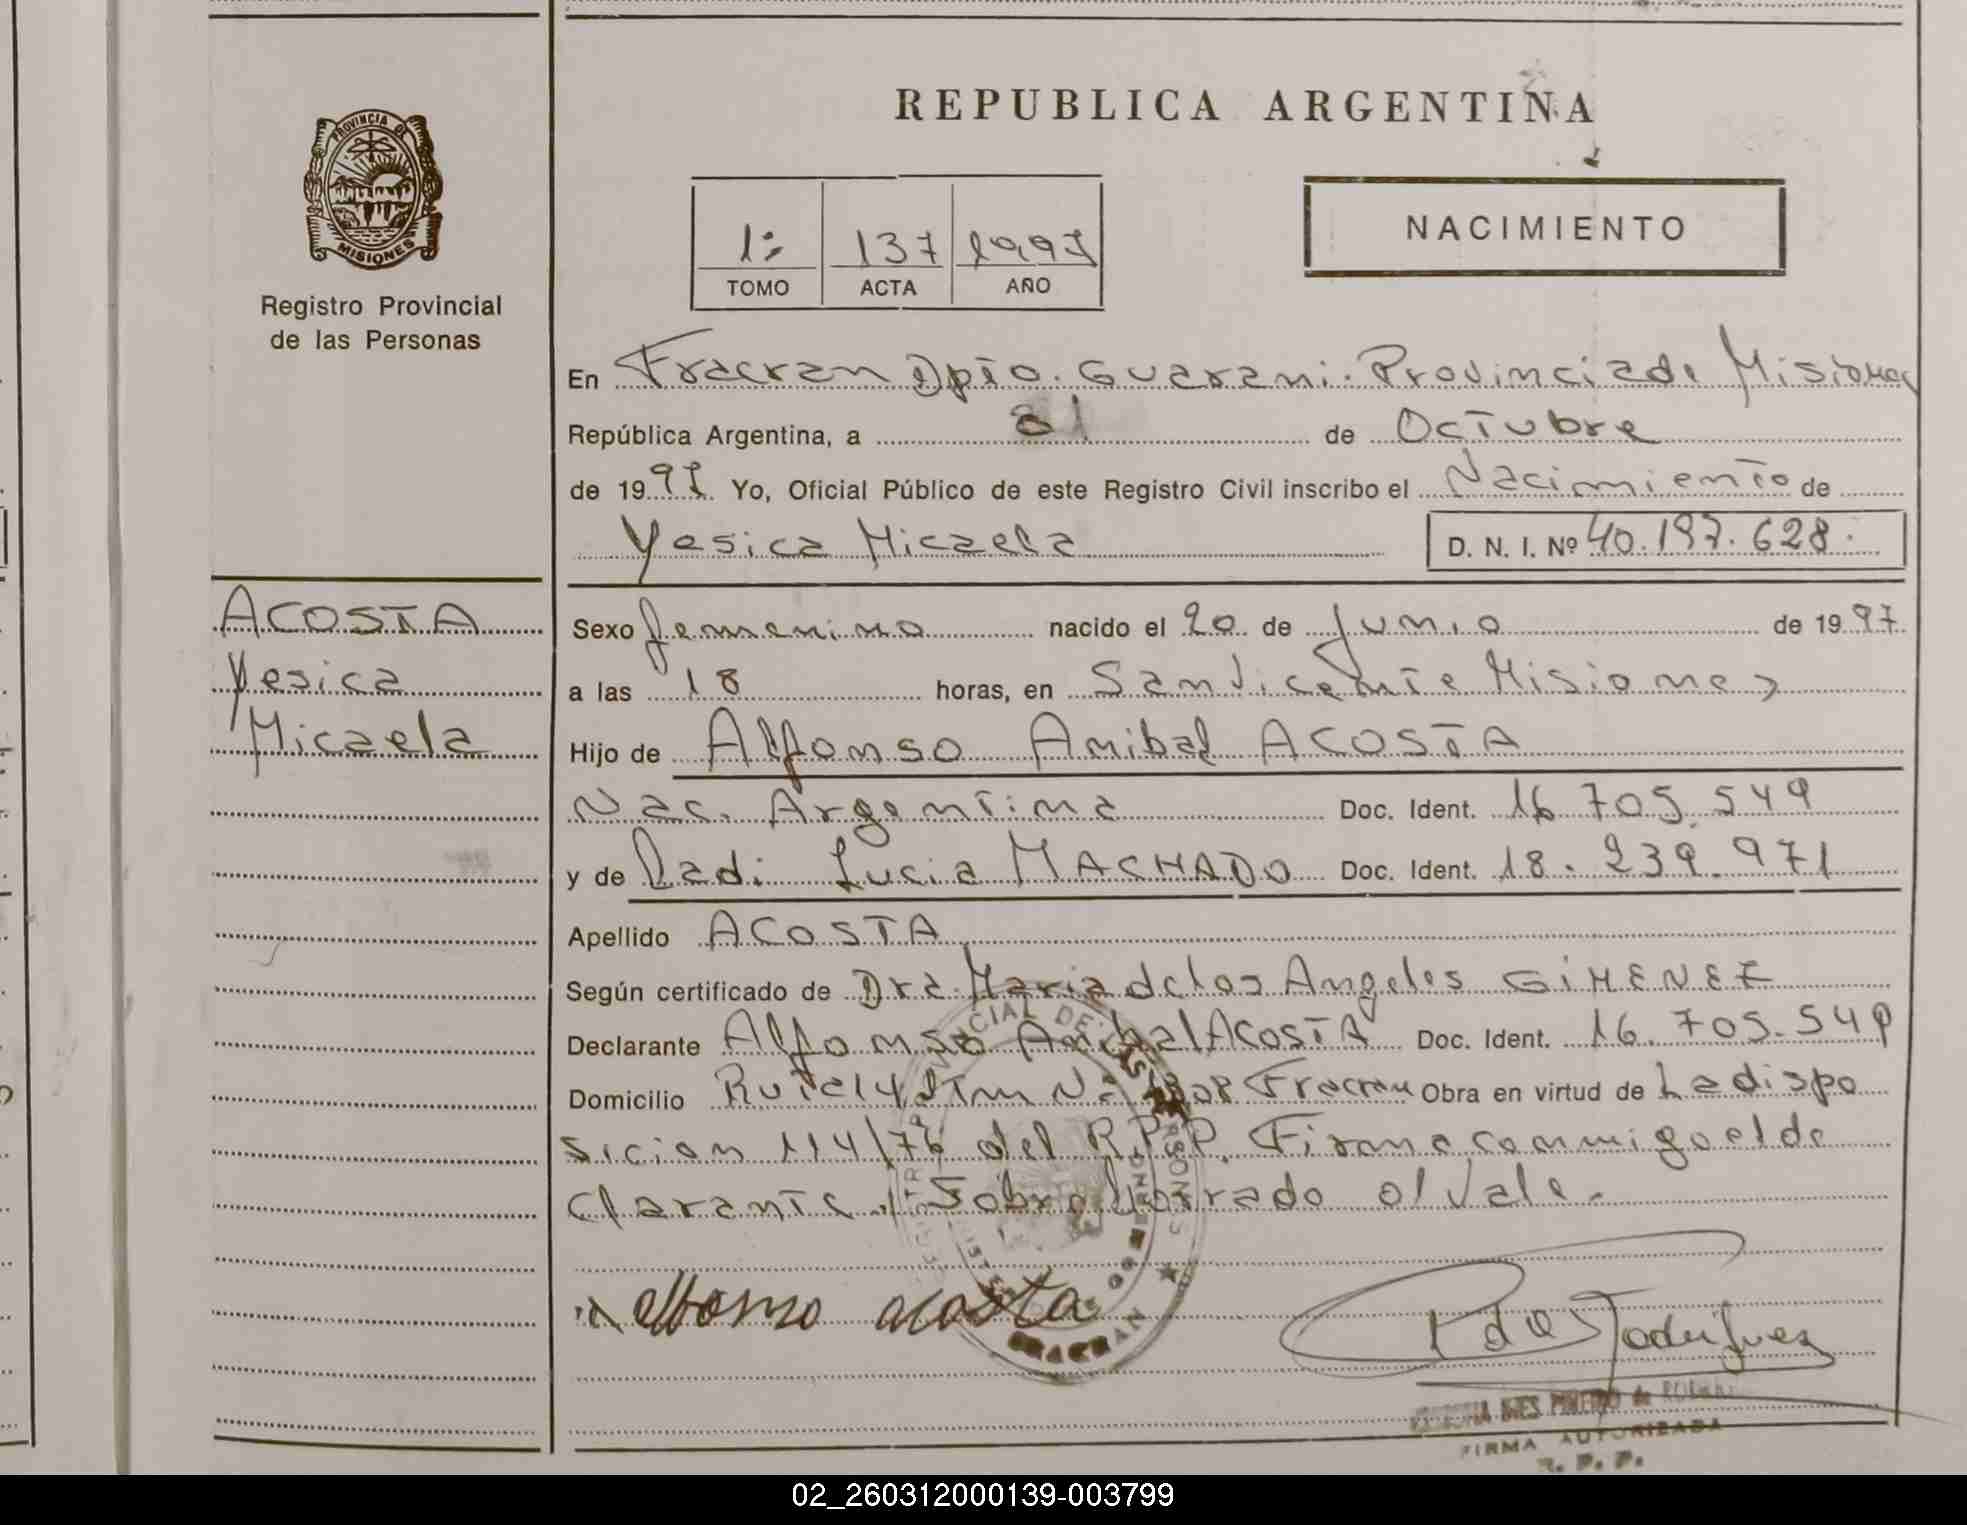 REPUBLICA ARGENTINA
PROVINCIA DE
MISIONES
Registro Provincial
de las Personas
1º 137 1997
TOMO ACTA AÑO
NACIMIENTO
En Fracran Dpto. Guarani. Provincia de Misiones
República Argentina, a 01 de Octubre
de 1997 Yo, Oficial Público de este Registro Civil inscribo el Nacimiento de
Yesica Micaela D. N. I. Nº 40.197.628.
ACOSTA
Yesica
Micaela
Sexo femenino nacido el 20 de Junio de 1997
a las 18 horas, en San Vicente Misiones
Hijo de Alfonso Anibal ACOSTA
Nac. Argentina Doc. Ident. 16.705.549
y de Ladi Lucia MACHADO Doc. Ident. 18.239.971
Apellido ACOSTA
Según certificado de Dra. Maria de los Angeles GIMENEZ
Declarante Alfonso Anibal ACOSTA Doc. Ident. 16.705.549
Domicilio Fracran Obra en virtud de La dispo
sicion 114/76 del R.P.P. Firma conmigo el de
clarante. Sobre borrado 01 Vale.
Alfonso acosta
Rodriguez
INES de
FIRMA AUTORIZADA
R. P. P.
FRACRAN
02_260312000139-003799